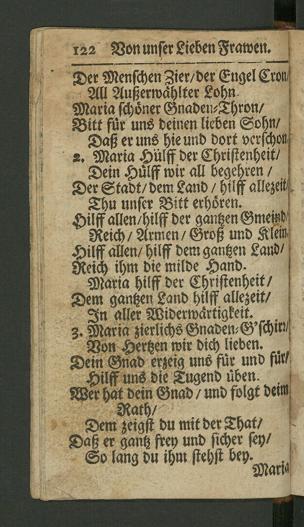 122 Von unser Lieben Frawen.
Der Menschen Zier/der Engel Cron/
All Außerwählter Lohn.
Maria schöner Gnaden-Thron/
Bitt für uns deinen lieben Sohn/
Daß er uns hie und dort verschon.
2. Maria Hülff der Christenheit/
Dein Hülff wir all begehren/
Der Stadt/ dem Land/ hilff allezeit/
Thu unser Bitt erhören.
Hilff allen/hilff der gantzen Gmeind/
Reich/ Armen/ Groß und Klein/
Hilff allen/ hilff dem gantzen Land/
Reich ihm die milde Hand.
Maria hilff der Christenheit/
Dem gantzen Land hilff allezeit/
In aller Widerwärtigkeit.
3. Maria zierlichs Gnaden-G'schirr/
Von Hertzen wir dich lieben.
Dein Gnad erzeig uns für und für/
Hilff uns die Tugend üben.
Wer hat dein Gnad/ und folgt deim
Rath/
Dem zeigst du mit der That/
Daß er gantz frey und sicher sey/
So lang du ihm stehst bey.
Maria